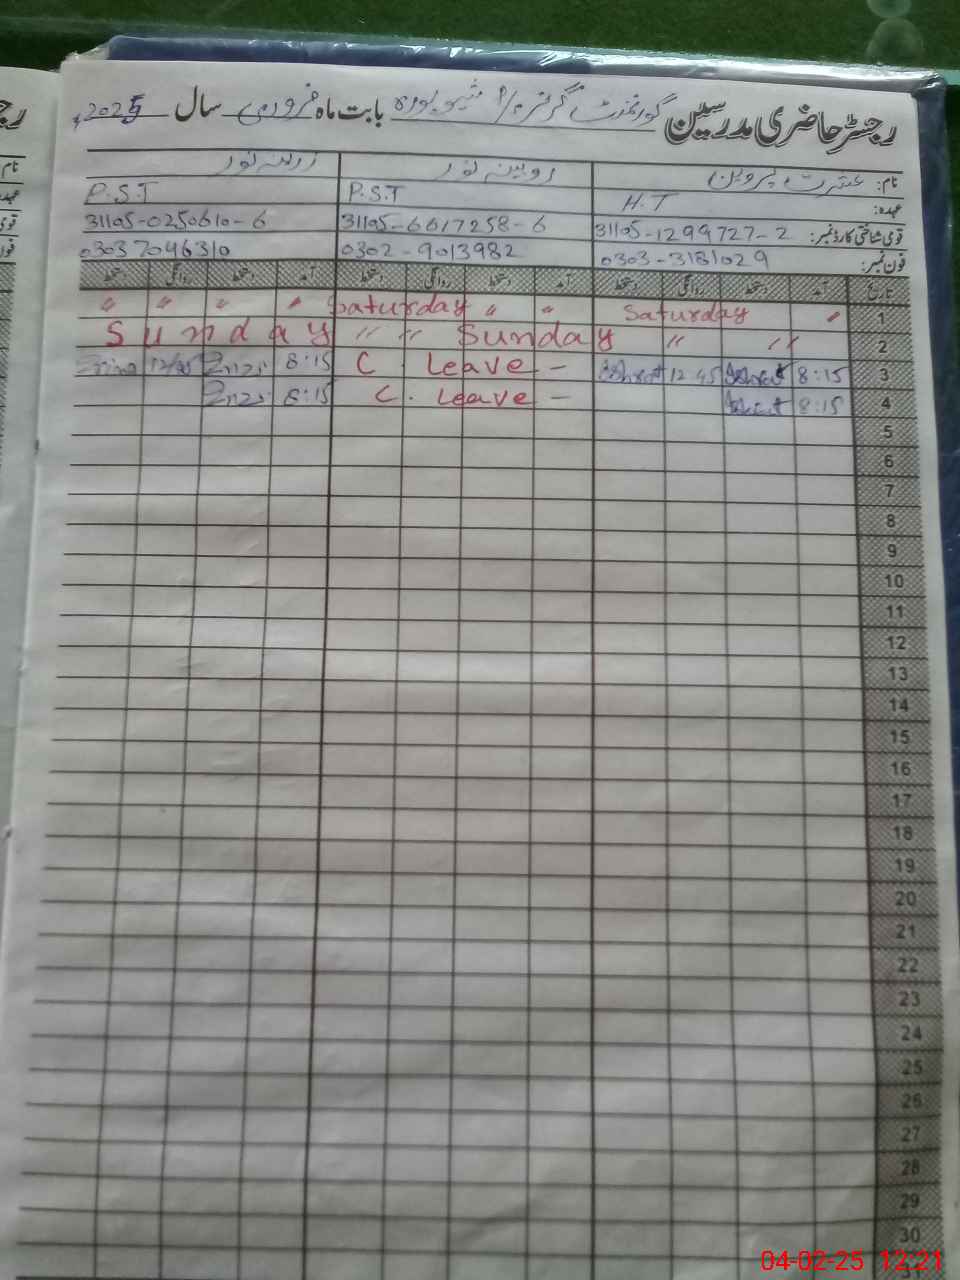 رجسٹر حاضری مدرسین گورنمنٹ گرلز بابت ماہ فروری سال 2025ء
نام: عشرت پروین روبینہ نور زرینہ نور
عہدہ: H.T P.S.T P.S.T
قومی شناختی کارڈ نمبر: 31105-1299727-2 31105-6617258-6 31105-0250610-6
فون نمبر: 0303-3181029 0302-9013982 03037096310
تاریخ آمد دستخط روانگی دستخط آمد دستخط روانگی دستخط آمد دستخط روانگی دستخط
1 〃 Saturday 〃 〃 Saturday 〃 〃 〃 〃
2 〃 〃 Sunday 〃 〃 Sunday
3 8:15 Ishrat 12:45 Ishrat C Leave - 8:15 12/45
4 8:15 Ishrat C. Leave - 8:15
5
6
7
8
9
10
11
12
13
14
15
16
17
18
19
20
21
22
23
24
25
26
27
28
29
30
04-02-25 12:21